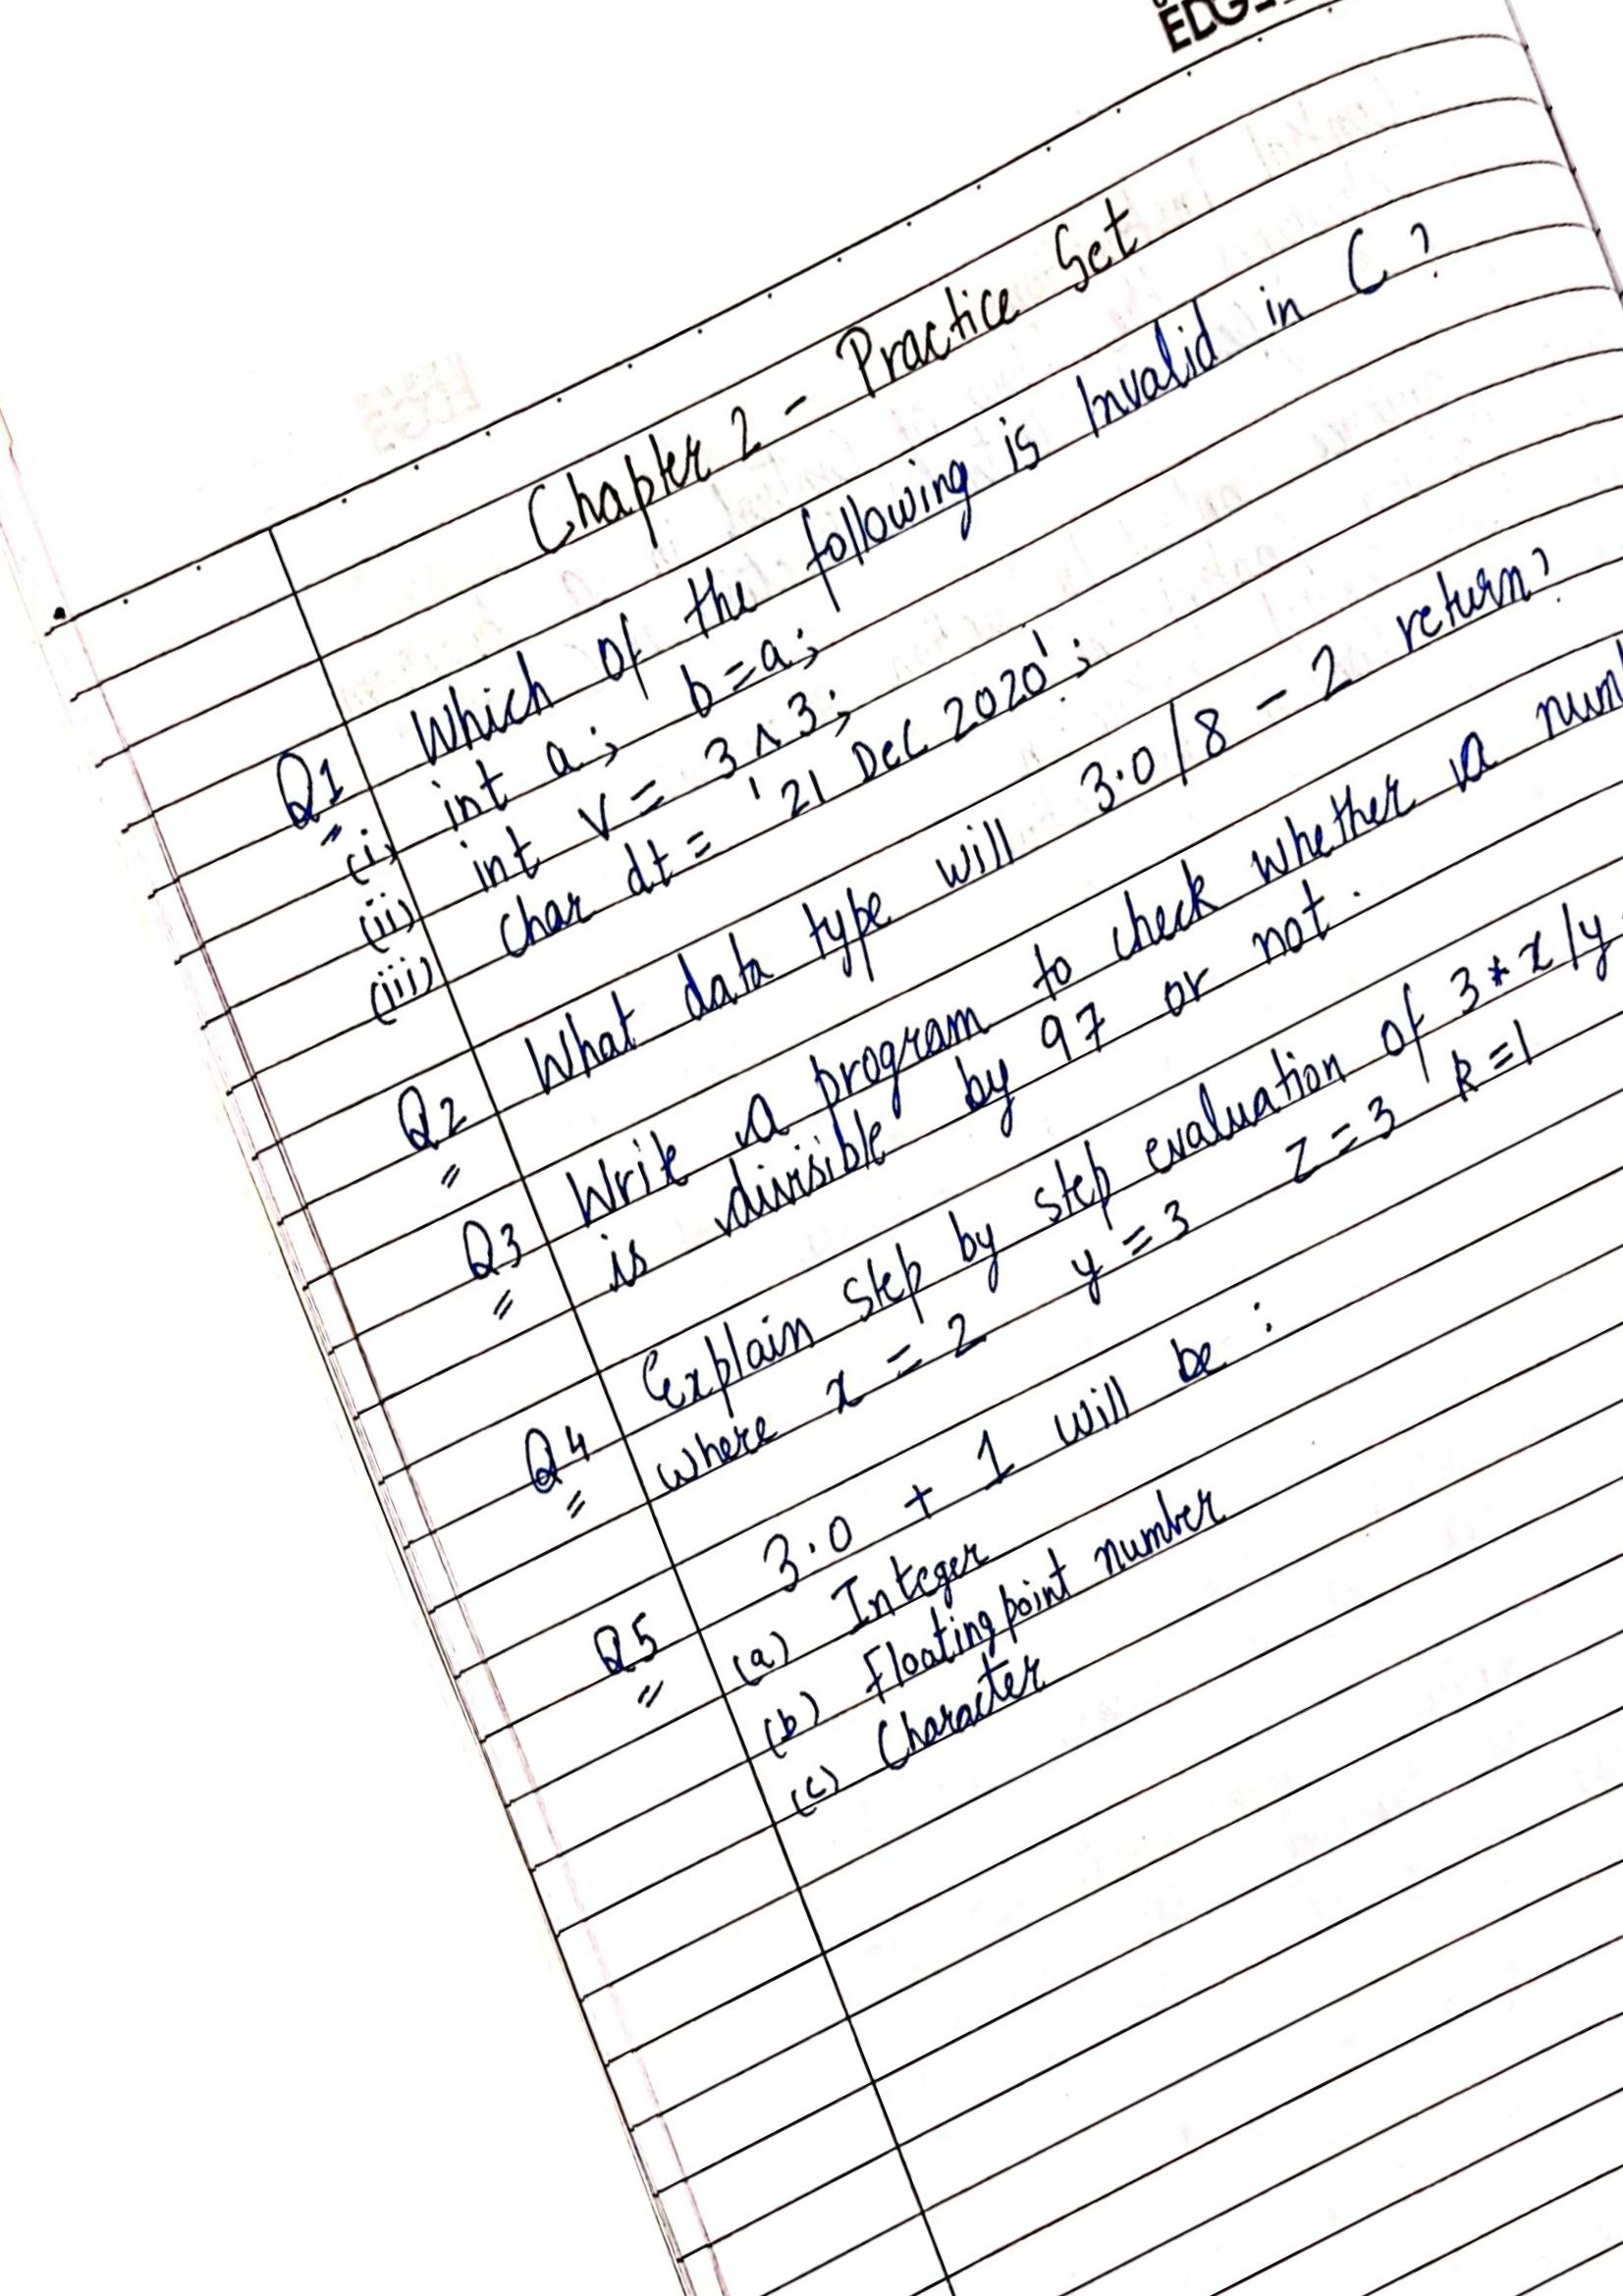 Chapter 2 - Practice Set
Q1 Which of the following is Invalid in C?
(i) int a; b=a;
(ii) int v = 3^3;
(iii) char dt = '21 Dec 2020';
Q2 What data type will 3.0/8 - 2 return?
Q3 Write a program to check whether a num
is divisible by 97 or not.
Q4 Explain step by step evaluation of 3*x/y
where x = 2 y = 3 z = 3 k = 1
Q5 3.0 + 1 will be :
(a) Integer
(b) Floating point number
(c) Character